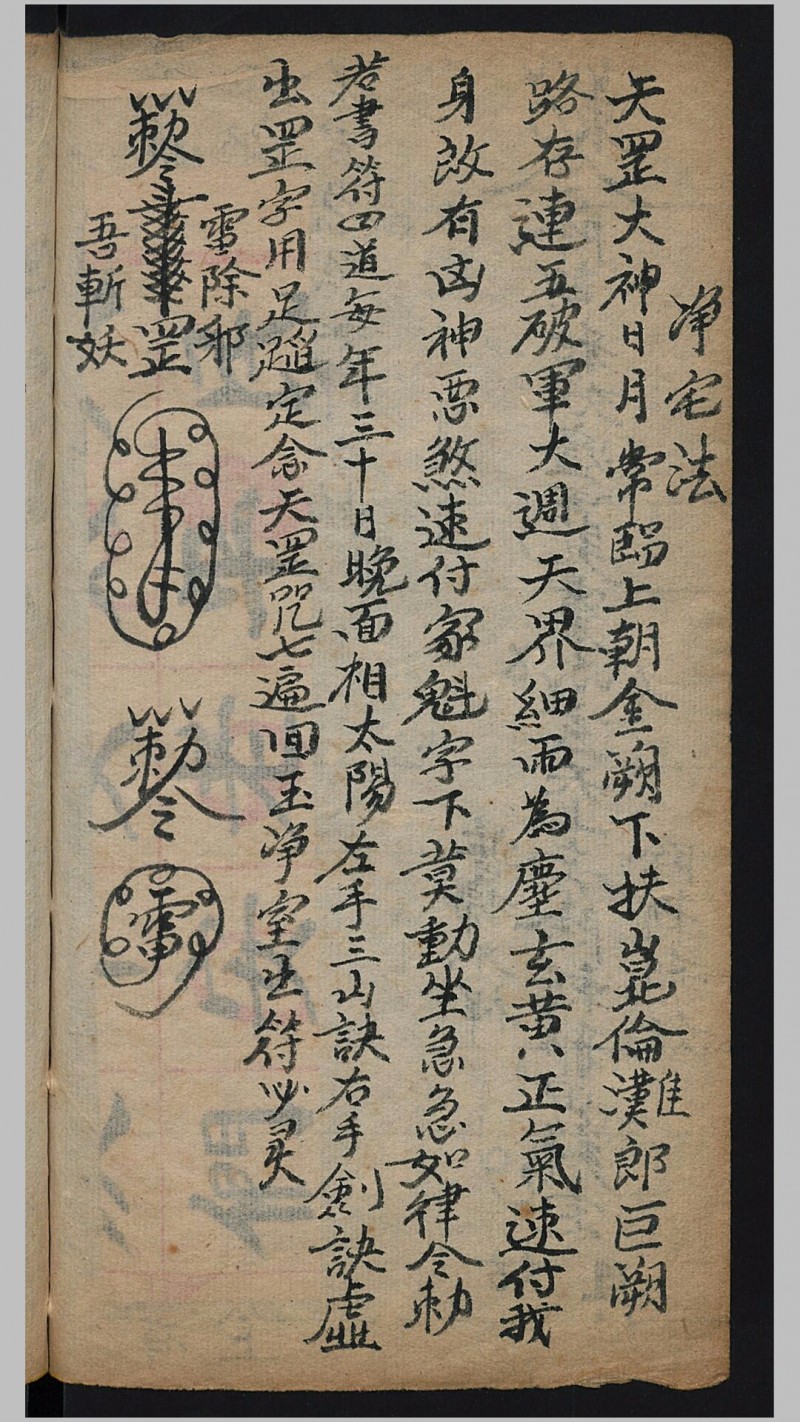 净宅法
天罡大神日月常臨上朝金闕下扶崑倫灘郎巨闕
路存連五破軍大週天界細雨為塵玄黄八正氣速付我
身故有凶神惡煞速付家魁字下莫動坐急急如律令勅
若書符四道每年三十日晚面相太陽左手三山訣右手劍訣虛
出罡字用足定念天罡咒七遍回玉净室出符必灵
勅令
罡
雷除邪
吾斬妖
勅令
雷